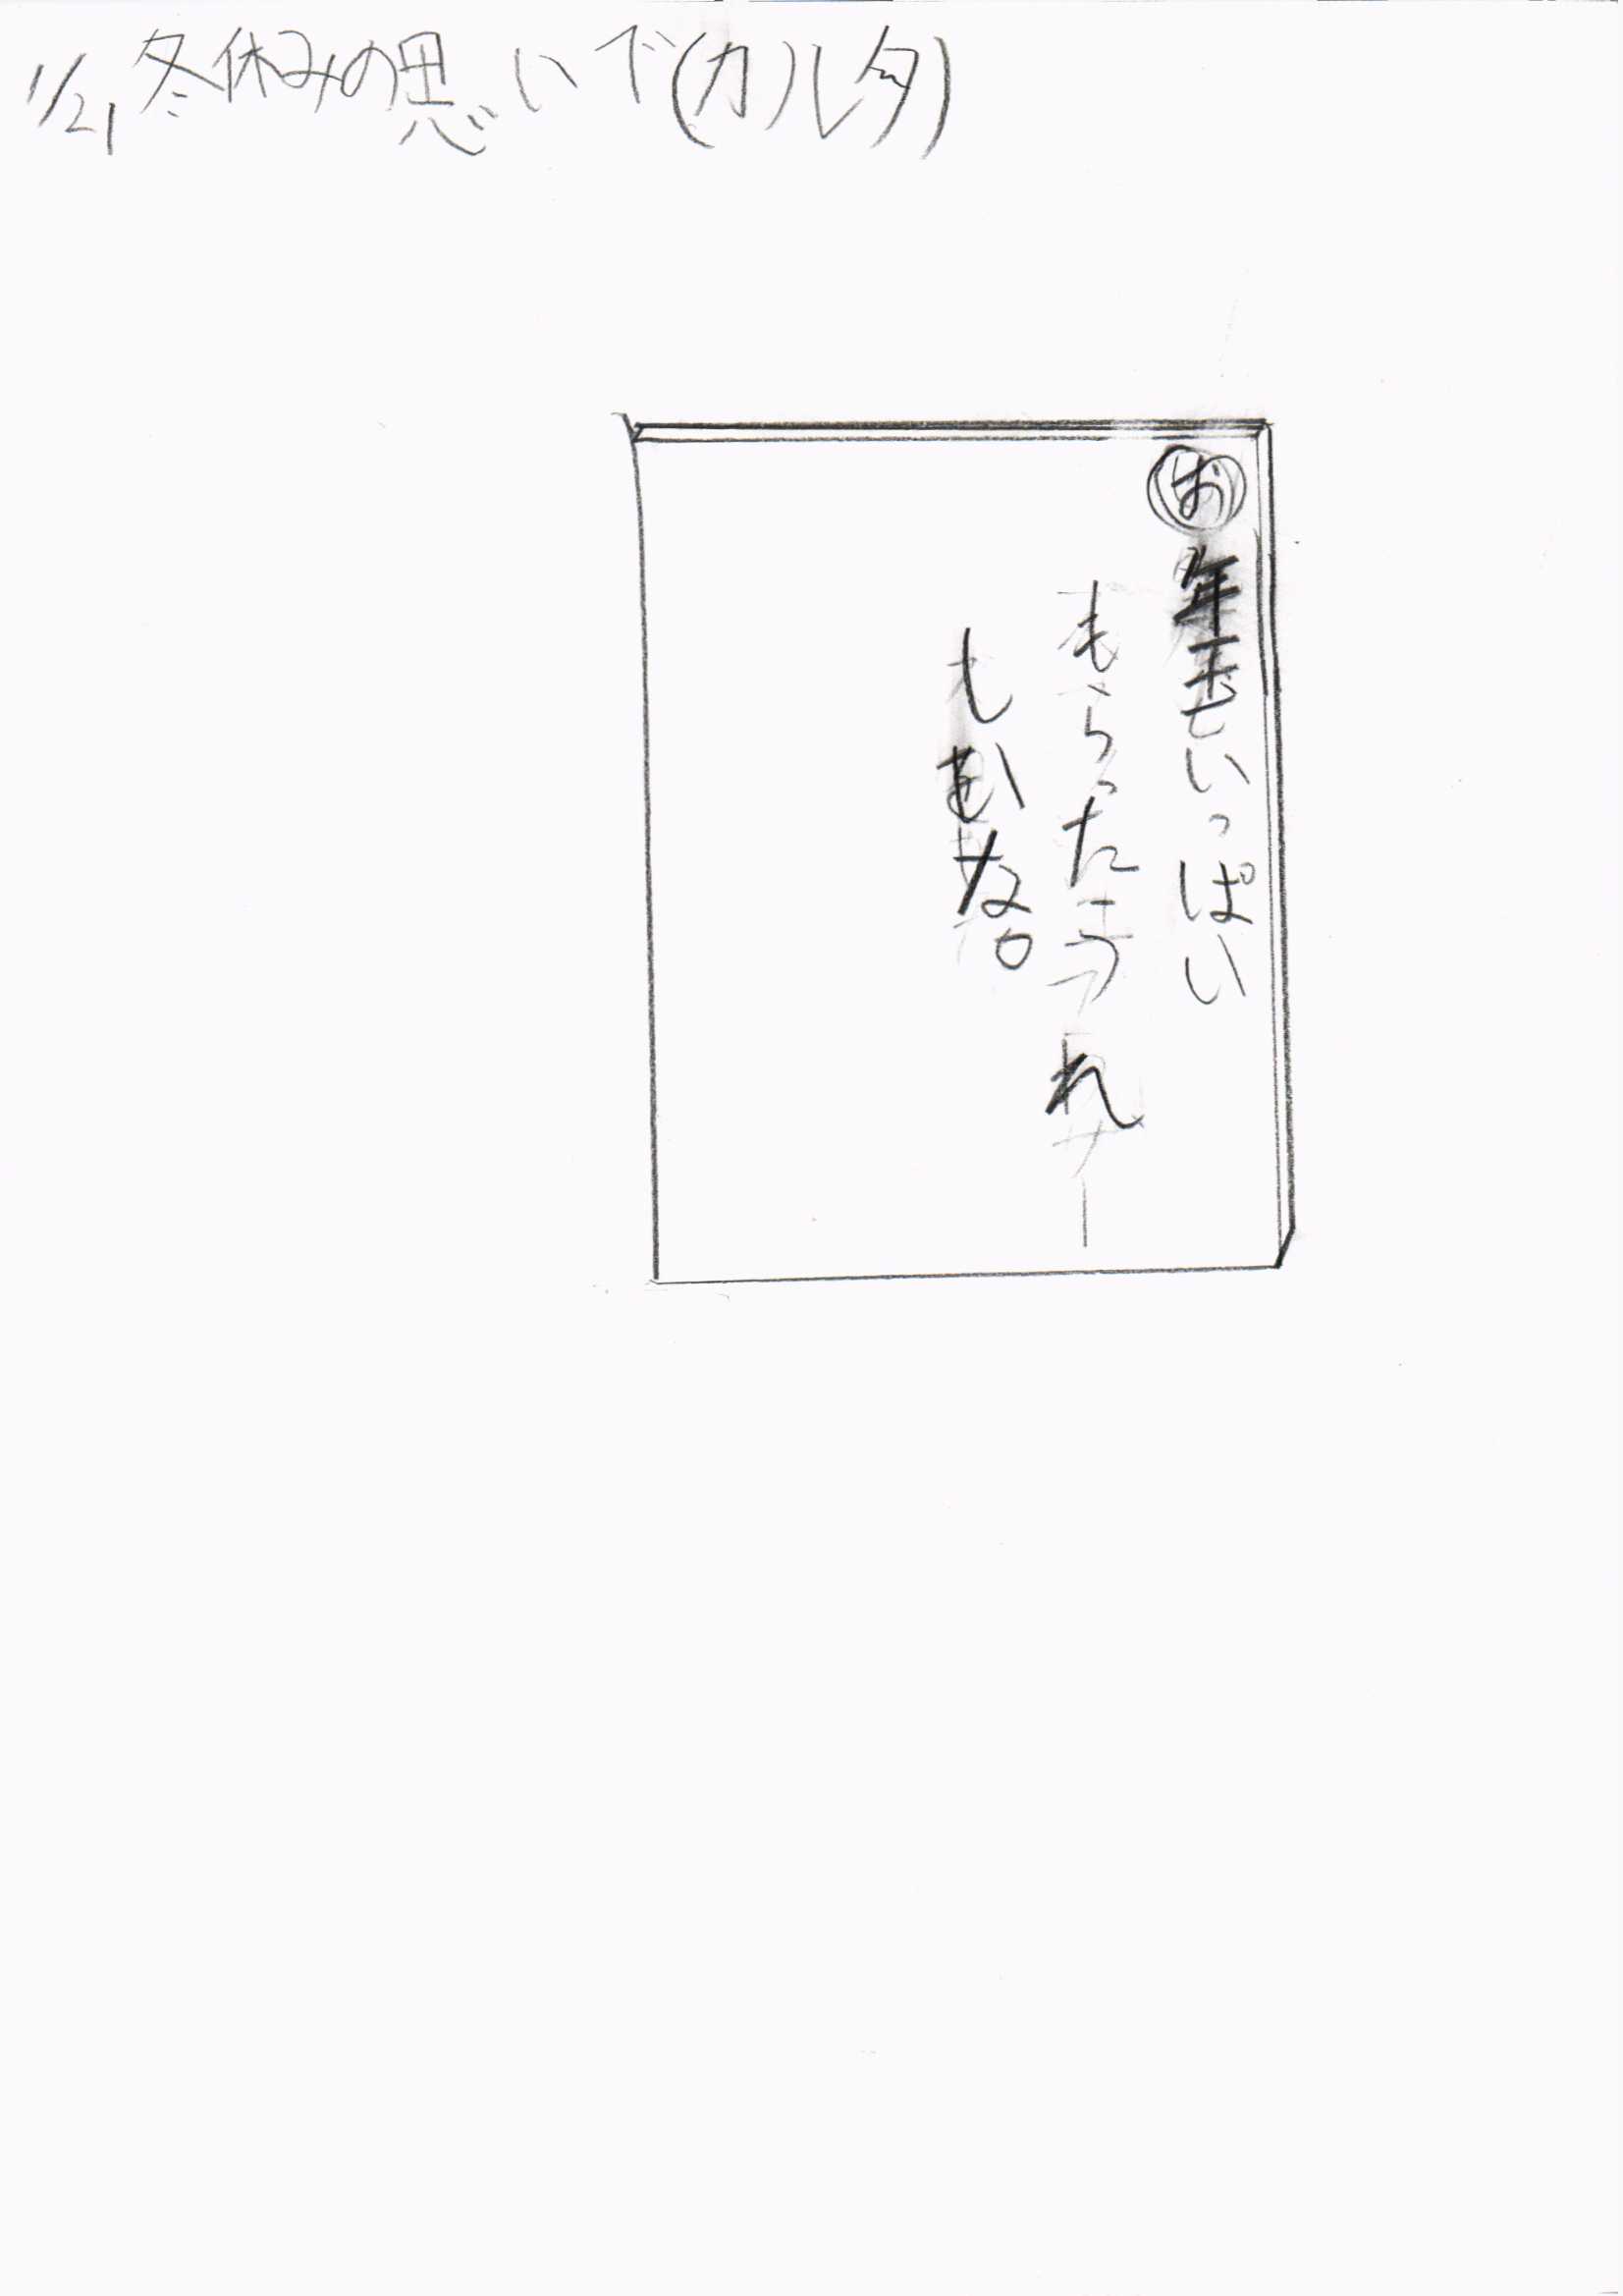 1/21, 冬休みの思いで(カルタ)
お年玉いっぱい
もらったうれ
しいな。